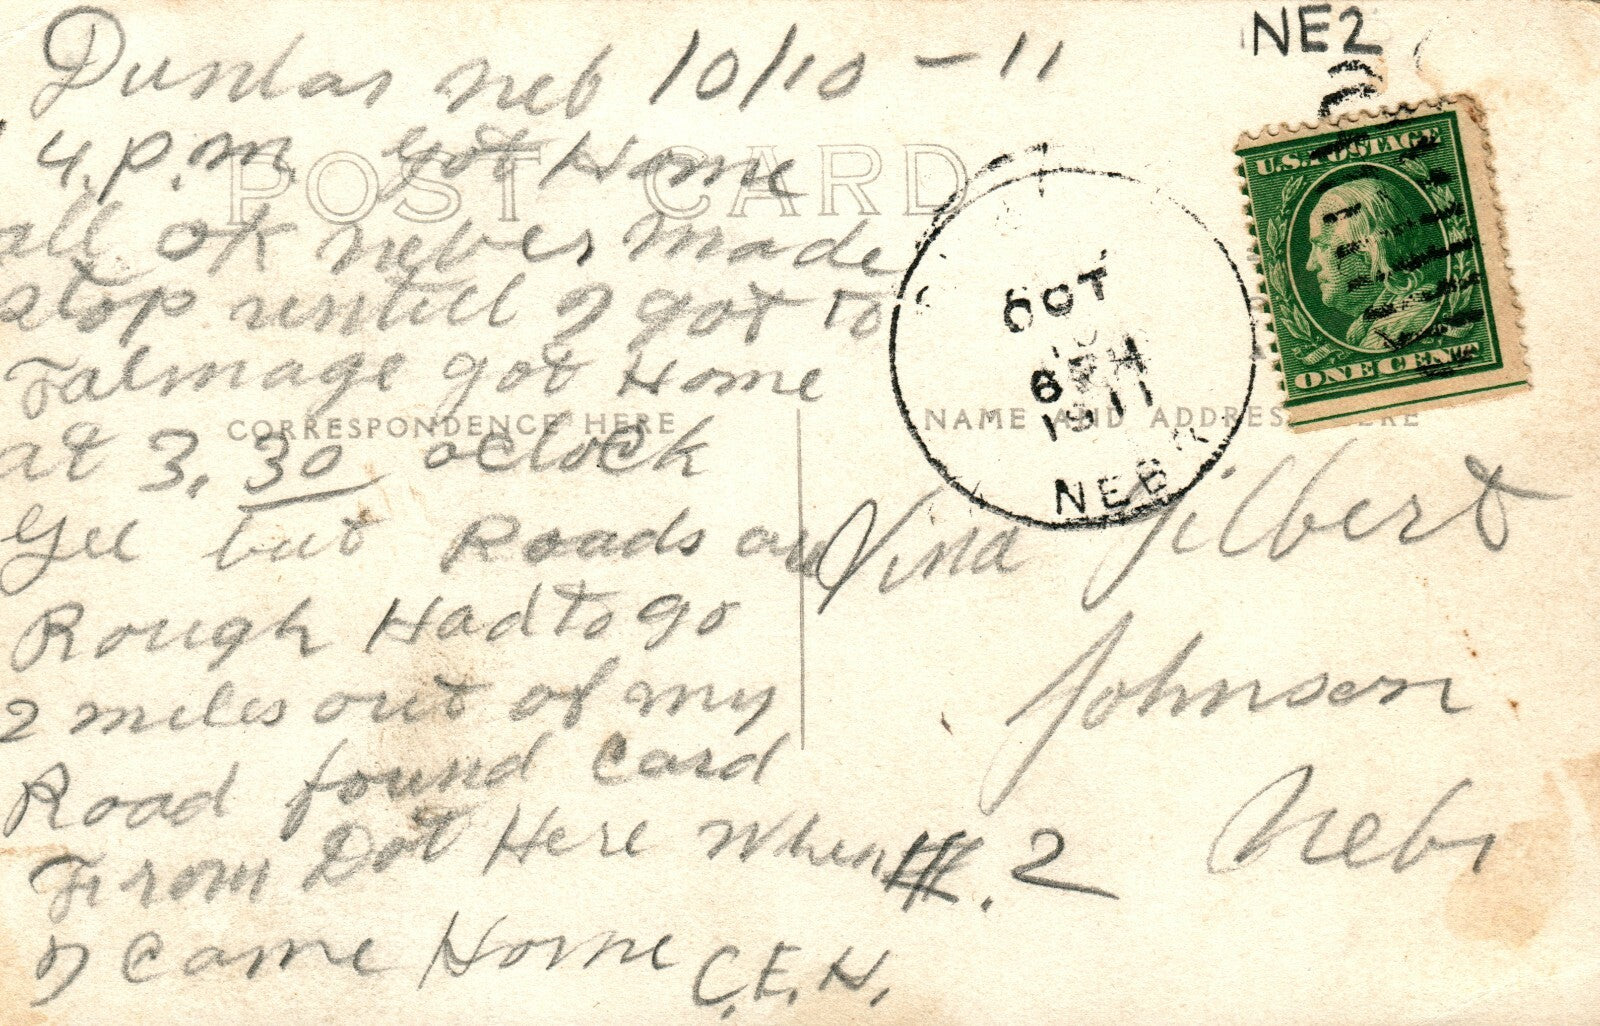 Dunbar Neb 10/10 - 11
4. P. m. got Home
all ok never made
stop untill I got to
Talmage got Home
at 3.30 oclock
Yee but Roads are
Rough Had to go
2 miles out of my
Road found Card
From Dot Here When
I Came Home C.E.H.
POST CARD
CORRESPONDENCE HERE
NAME AND ADDRESS HERE
NE2
U.S. POSTAGE
ONE CENT
OCT
6 PM
1911
NEBR
Vina Gilbert
Johnson
Nebr
#. 2